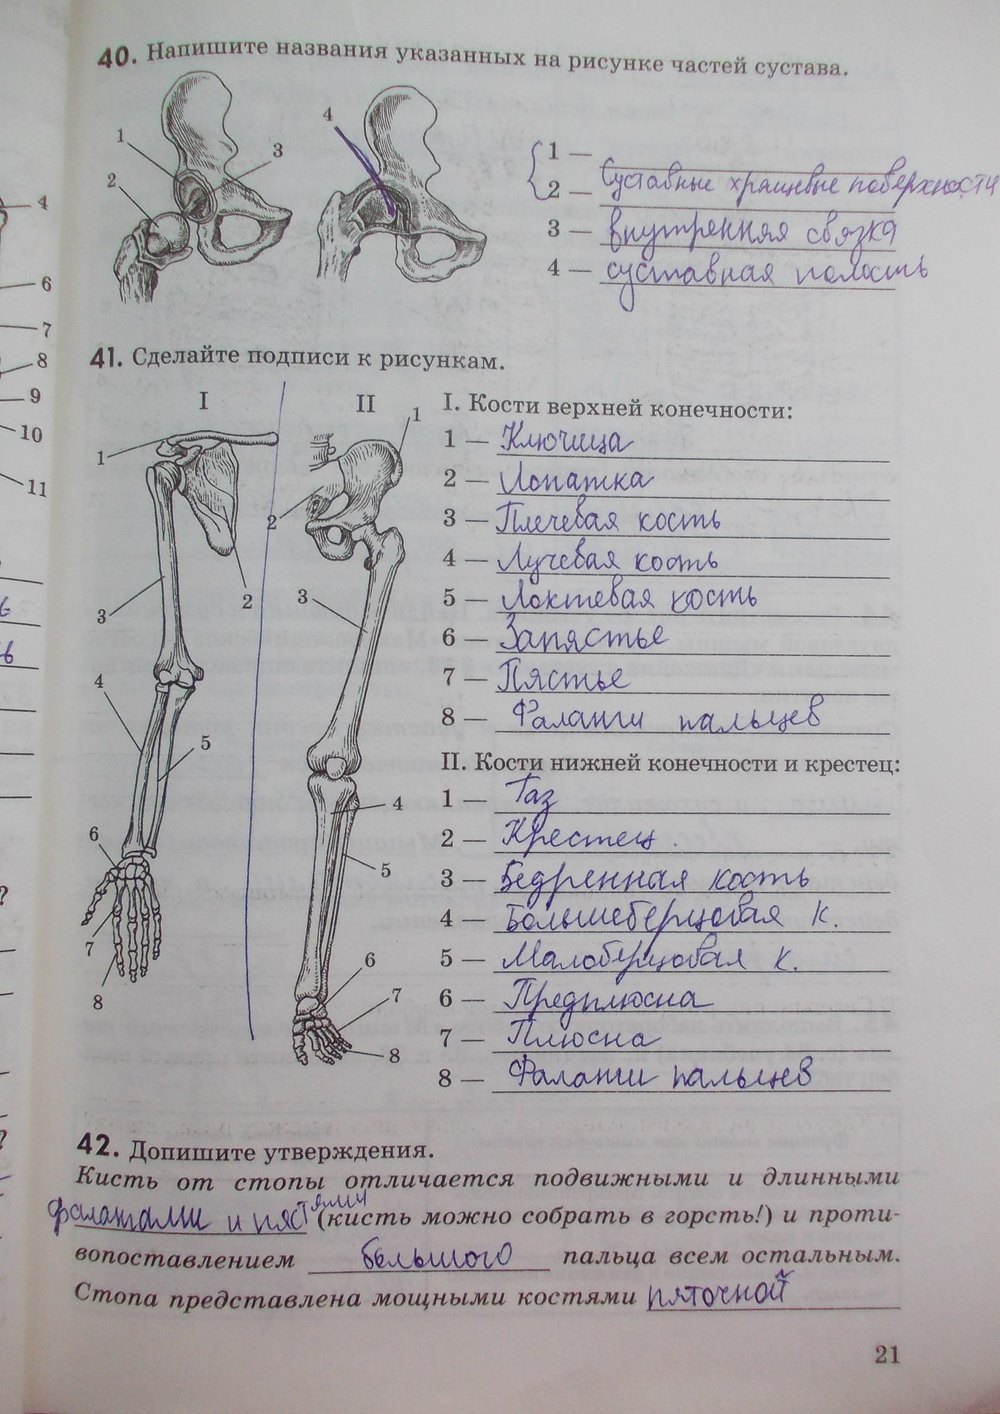 40. Напишите названия указанных на рисунке частей сустава.
1
2
3
4
1 —
2 — Суставные хрящевые поверхности
3 — внутренняя связка
4 — суставная полость
4
6
7
8
9
10
11
41. Сделайте подписи к рисункам.
I
II
1
2
3
4
5
6
7
8
1
2
3
4
5
6
7
8
I. Кости верхней конечности:
1 — Ключица
2 — Лопатка
3 — Плечевая кость
4 — Лучевая кость
5 — Локтевая кость
6 — Запястье
7 — Пястье
8 — Фаланги пальцев
II. Кости нижней конечности и крестец:
1 — Таз
2 — Крестец.
3 — Бедренная кость
4 — Большеберцовая к.
5 — Малоберцовая к.
6 — Предплюсна
7 — Плюсна
8 — Фаланги пальцев
42. Допишите утверждения.
Кисть от стопы отличается подвижными и длинными
фалангами и пястями (кисть можно собрать в горсть!) и проти-
вопоставлением большого пальца всем остальным.
Стопа представлена мощными костями пяточной
21